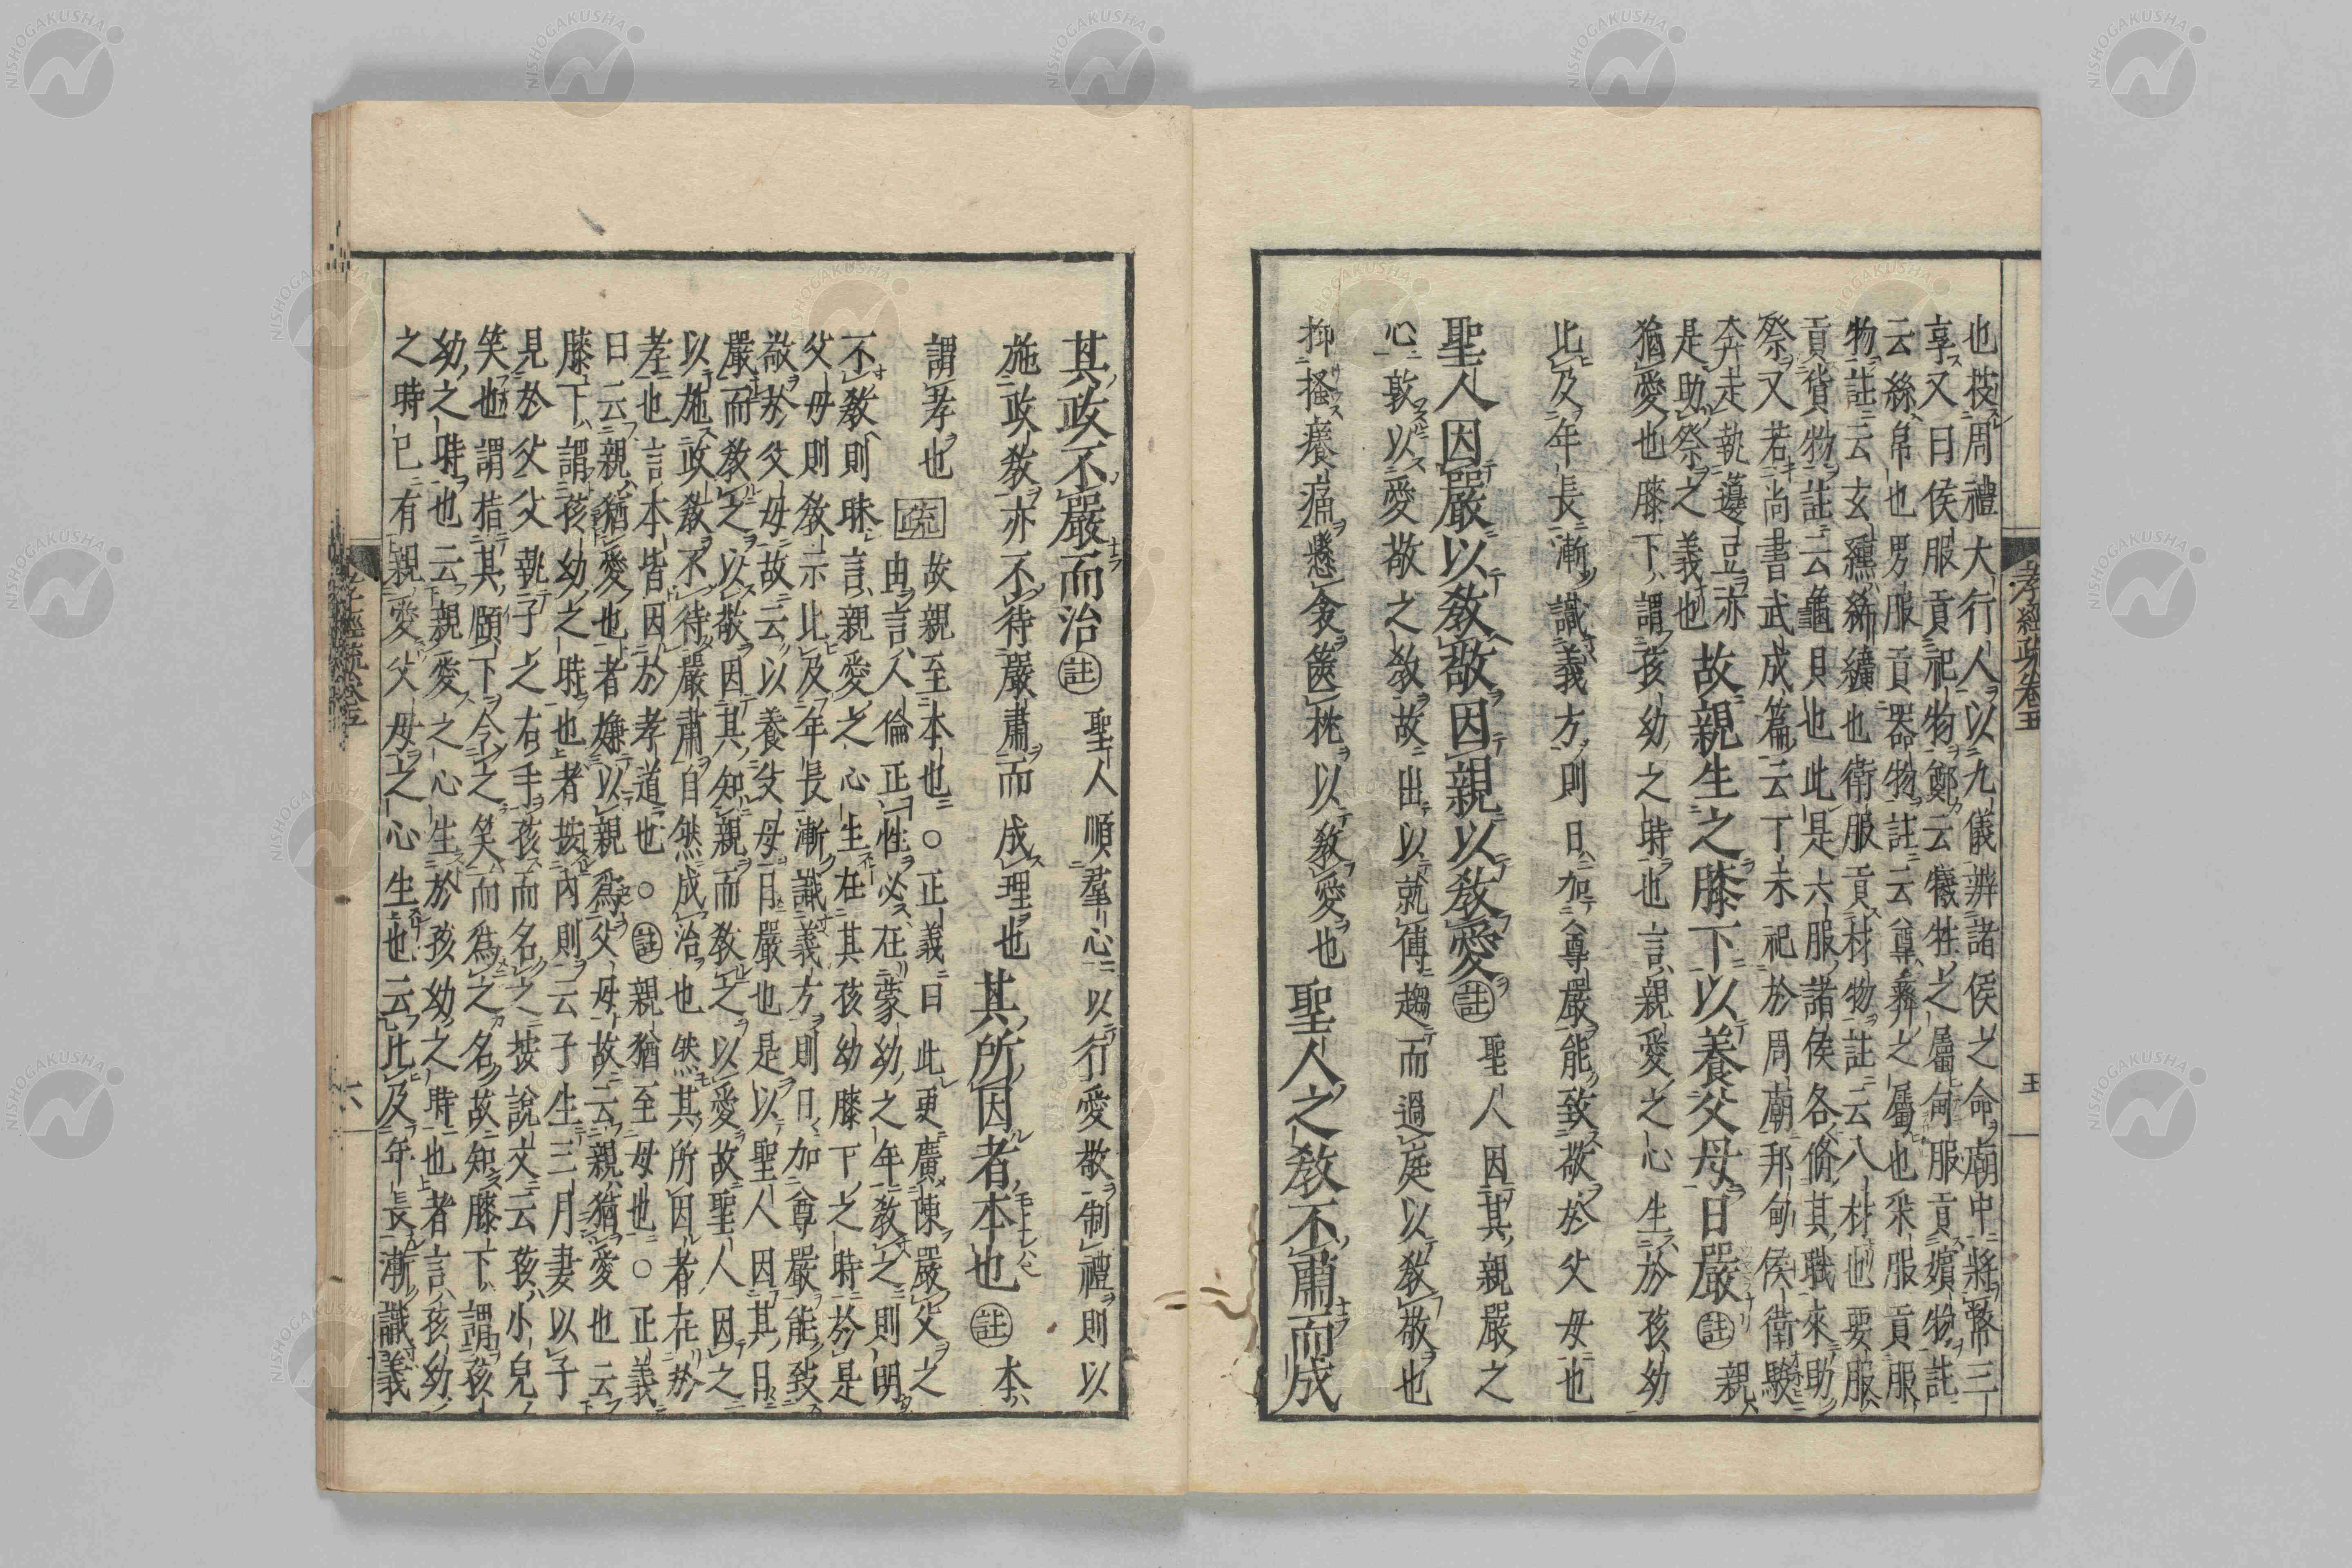 也按周禮大行人以九儀辨諸侯之命廟中將幣三
享又曰侯服貢祀物鄭云犧牲之屬甸服貢嬪物註
云絲帛也男服貢器物註云尊彝之屬也采服貢服
物註云玄纁絺纊也衛服貢材物註云八材也要服
貢貨物註云龜貝也此是六服諸侯各脩其職來助
祭又若尚書武成篇云丁未祀於周廟邦甸侯衛駿
奔走執籩豆亦
是助祭之義也
故親生之膝下以養父母日嚴 註 親
猶愛也膝下謂孩幼之時也言親愛之心生於孩幼
比及年長漸識義方則日加尊嚴能致敬於父母也
聖人因嚴以教敬因親以教愛 註 聖人因其親嚴之
心敦以愛敬之教故出以就傅趨而過庭以教敬也
抑搔癢痛懸衾篋枕以教愛也 聖人之教不肅而成
孝經疏卷五
五
其政不嚴而治 註 聖人順羣心以行愛敬制禮則以
施政教亦不待嚴肅而成理也 其所因者本也 註 本
謂孝也 疏
故親至本也○正義曰此更廣陳嚴父之
由言人倫正性必在蒙幼之年教之則明
不教則昧言親愛之心生在其孩幼膝下之時於是
父母則教示比及年長漸識義方則日加尊嚴能致
敬於父母故云以養父母日嚴也是以聖人因其日
嚴而教之以敬因其知親而教之以愛故聖人因之
以施政教不待嚴肅自然成治也然其所因者在於
孝也言本皆因於孝道也○註親猶至母也○正義
曰云親猶愛也者嫌以親爲父母故云親猶愛也云
膝下謂孩幼之時也者按內則云子生三月妻以子
見於父父執子之右手孩而名之按說文云孩小兒
笑也謂指其頤下令之笑而爲之名故知膝下謂孩
幼之時也云親愛之心生於孩幼之時也者言孩幼
之時已有親愛父母之心生也云比及年長漸識義
孝經疏卷五
六
NISHOGAKUSHA